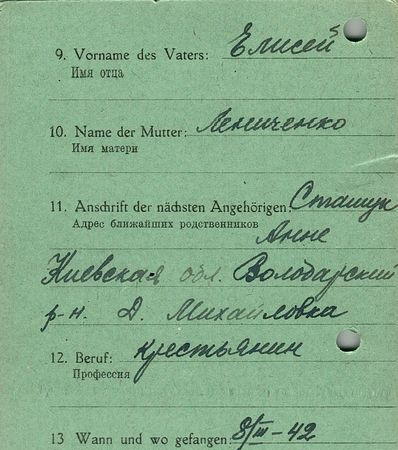 9. Vorname des Vaters: Елисей
Имя отца
10. Name der Mutter: Лениченко
Имя матери
11. Anschrift der nächsten Angehörigen: Сташук
Адрес ближайших родственников Анне
Киевская обл. Володарский
р-н. Д. Михайловка
12. Beruf: крестьянин
Профессия
13 Wann und wo gefangen: 8/III-42